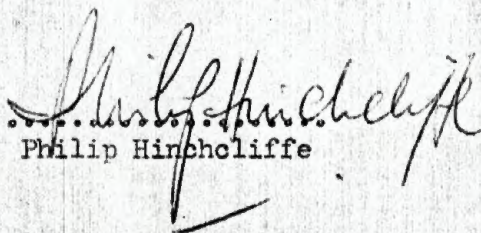 Philip Hinchcliffe
Philip Hinchcliffe